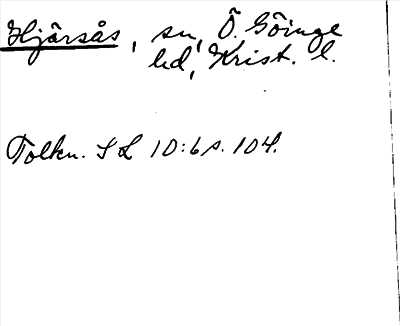 Hjärsås, sn, Ö. Göinge
hd, Krist. l.
Tolkn. SL 10:6 s. 104.